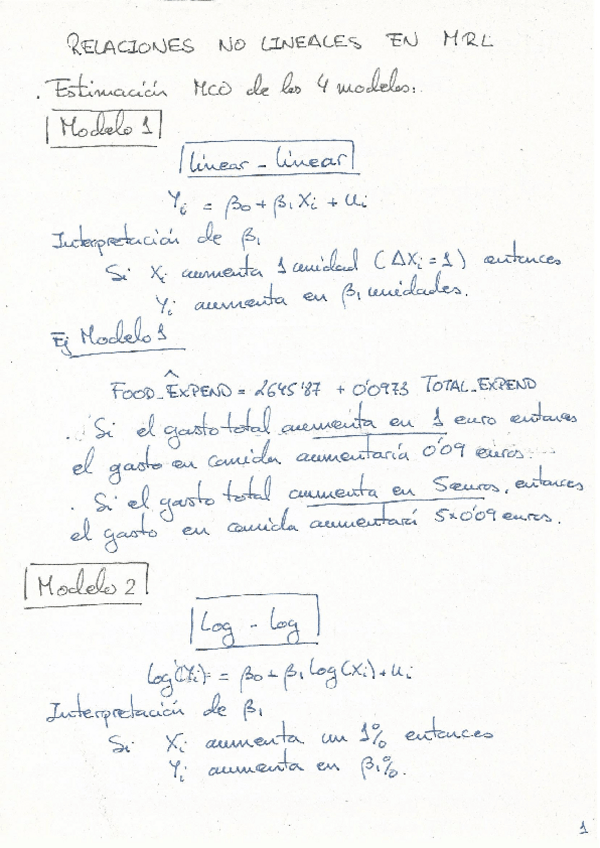 RELACIONES NO LINEALES EN MRL
. Estimación MCO de los 4 modelos:.
Modelo 1
linear - linear
Yi = β0 + β1 Xi + ui
Interpretación de β1
Si Xi aumenta 1 unidad (ΔXi = 1) entonces
Yi aumenta en β1 unidades.
Ej Modelo 1
FOOD_EXPEND^ = 2645'87 + 0'0973 TOTAL_EXPEND
. Si el gasto total aumenta en 1 euro entonces
el gasto en comida aumentaría 0'09 euros.
. Si el gasto total aumenta en 5 euros, entonces
el gasto en comida aumentará 5x0'09 euros.
Modelo 2
Log - log
log(Yi) = β0 + β1 log(Xi) + ui
Interpretación de β1
Si Xi aumenta un 1% entonces
Yi aumenta en β1%.
1